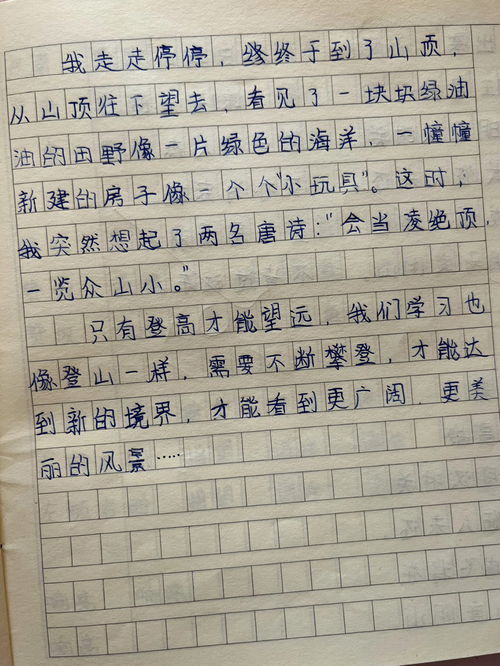 我走走停停，终终于到了山顶，
从山顶往下望去，看见了一块块绿油
油的田野像一片绿色的海洋，一幢幢
新建的房子像一个个“小玩具”。这时，
我突然想起了两名唐诗：“会当凌绝顶，
一览众山小。”
只有登高才能望远，我们学习也
像登山一样，需要不断攀登，才能达
到新的境界，才能看到更广阔，更美
丽的风景……